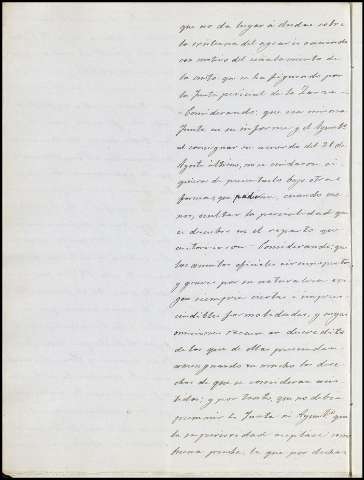 que no da lugar á dudas sobre
la existencia del agravio causado
con motivo del señalamiento de
la cuota que se ha figurado por
la Junta pericial de la Zarza
Considerando: que esa misma
Junta en su informe y el Ayunto
al consignar su acuerdo del 21 de
Agosto último, no se cuidaron si-
quiera de presentarlo bajo otras
formas que pudieran, cuando me-
nos, ocultar la parcialidad que
se descubre en el reparto que
Considerando: que
los asuntos oficiales
y graves por su naturaleza exi-
gen siempre ciertas é impres-
cindibles formalidades, y cuyas
omisiones recaen en descrédito
de los que de ellas prescinden
menguando en mucho los dere-
chos de que se consideran
y por tanto, que no debió
presumir la Junta ni Ayunto que
la superioridad aceptase como
buena prueba, la que por dichas